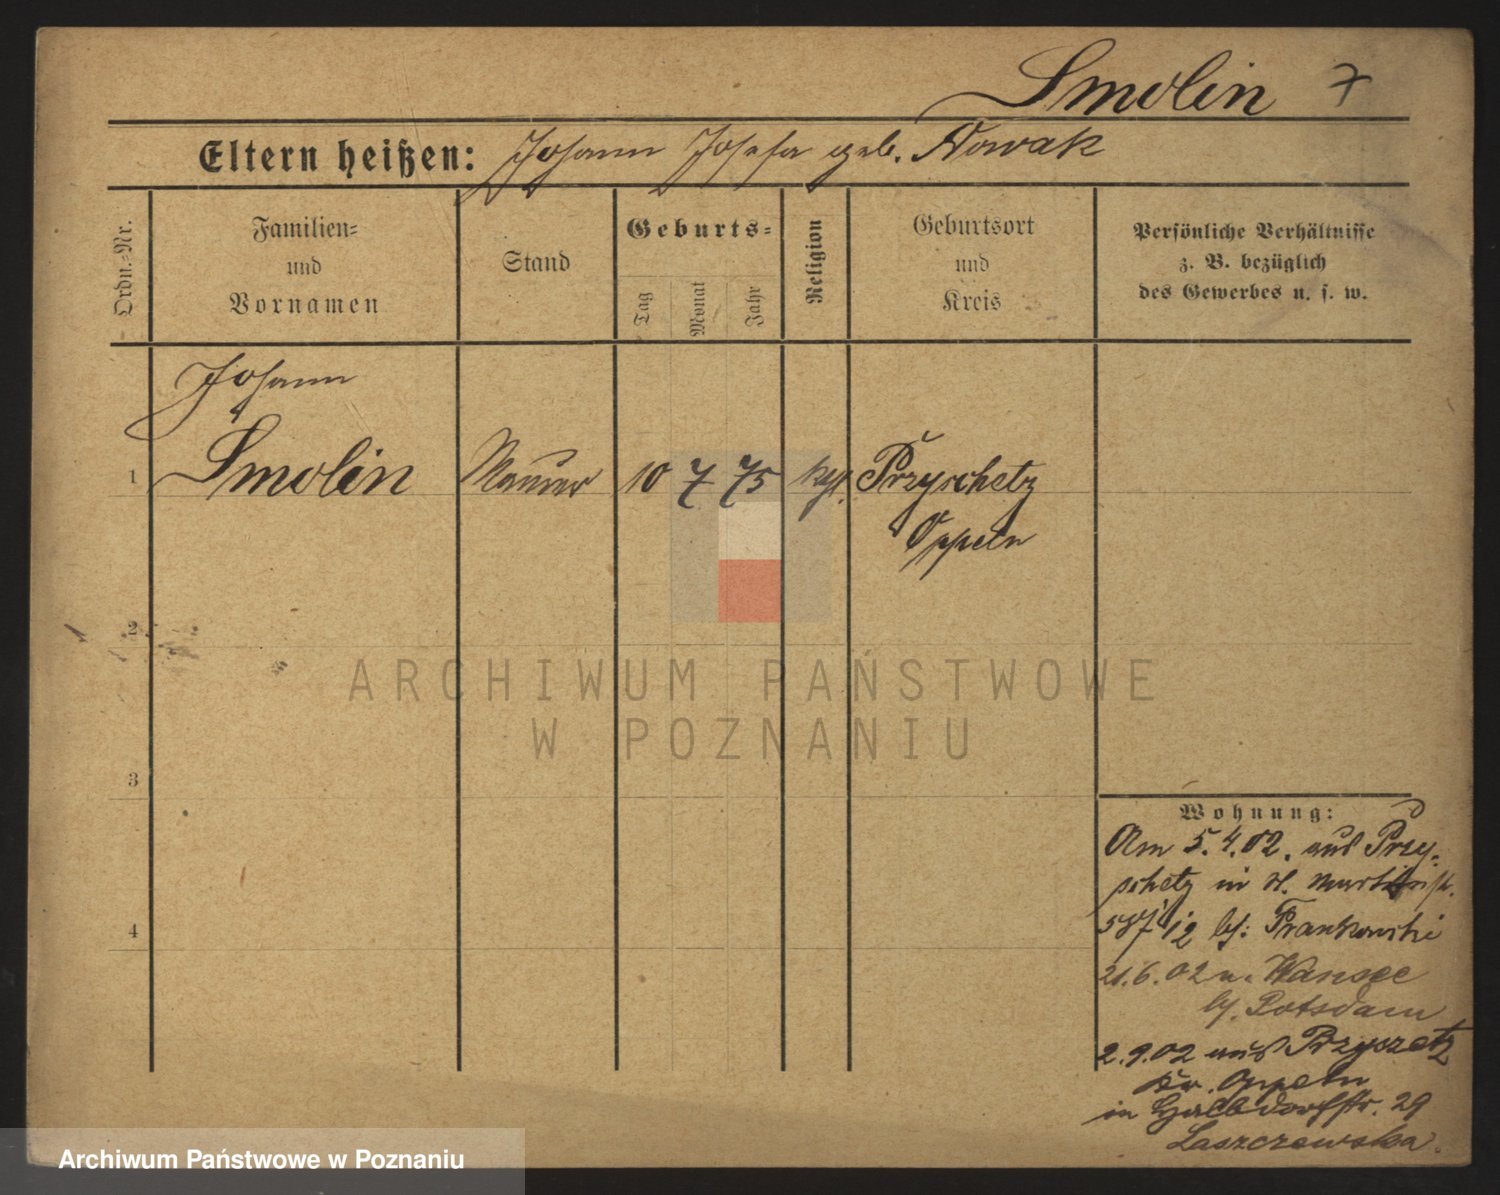 Smolin 7
Eltern heißen: Johann Josefa geb. Nowak
Ordn.-Nr.
Familien-
und
Vornamen
Stand
Geburts-
Tag
Monat
Jahr
Religion
Geburtsort
und
Kreis
Persönliche Verhältnisse
z. B. bezüglich
des Gewerbes u. s. w.
Johann
1 Smolin Maurer 10 7 75 kath. Przyschetz
Oppeln
2
ARCHIWUM PAŃSTWOWE
W POZNANIU
3
Wohnung:
Am 5.4.02. aus Przy-
schetz in St. Martinstr.
587/12 bei Frankowski
4
21.6.02 n. Wansee
b. Potsdam
2.9.02 aus Przyszetz
Kr. Oppeln
in Halbdorfstr. 29
Laszczewska.
Archiwum Państwowe w Poznaniu